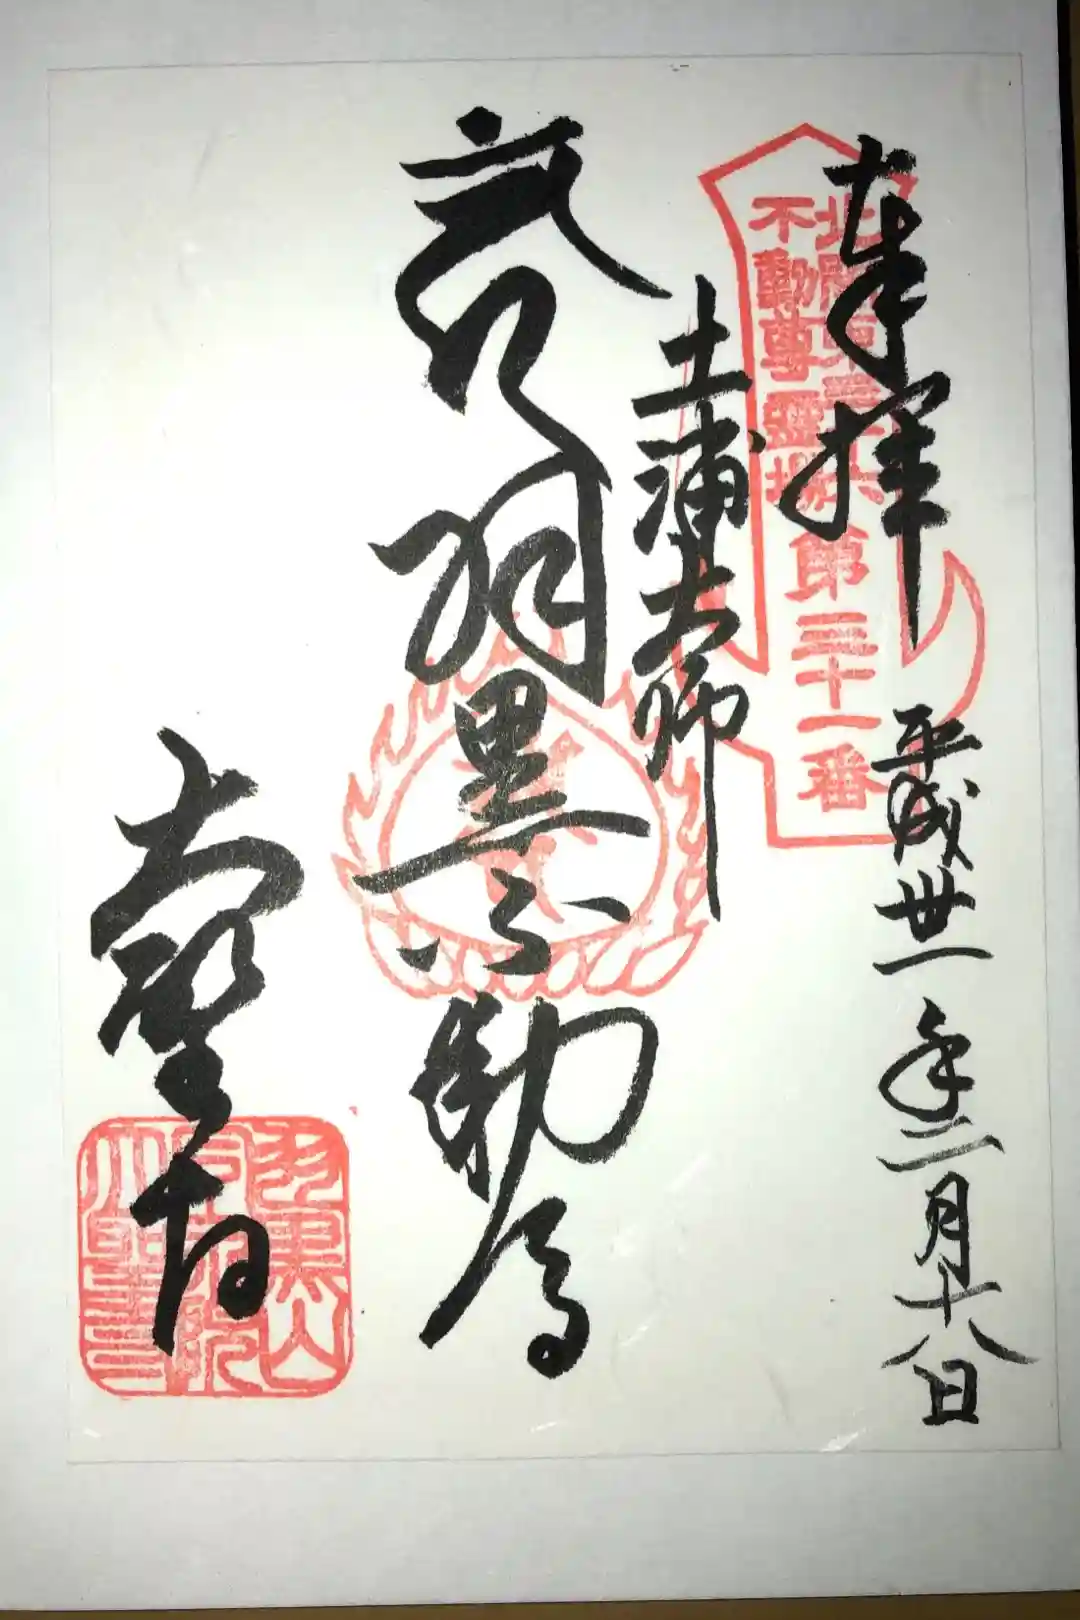 奉拝
平成卅一年二月十八日
北関東三十六
不動尊霊場
第三十一番
土浦大師
羽黒不動尊
大聖寺